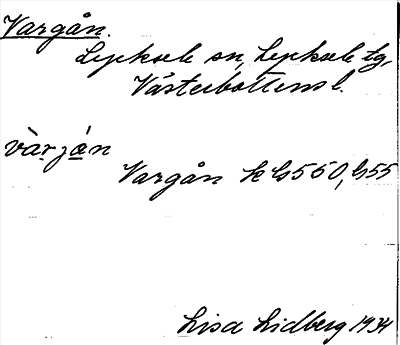 Vargån.
Lycksele sn, Lycksele tg,
Västerbottens l.
vàrján
Vargån k Gs 550, Gs 55
Lisa Lidberg 1934